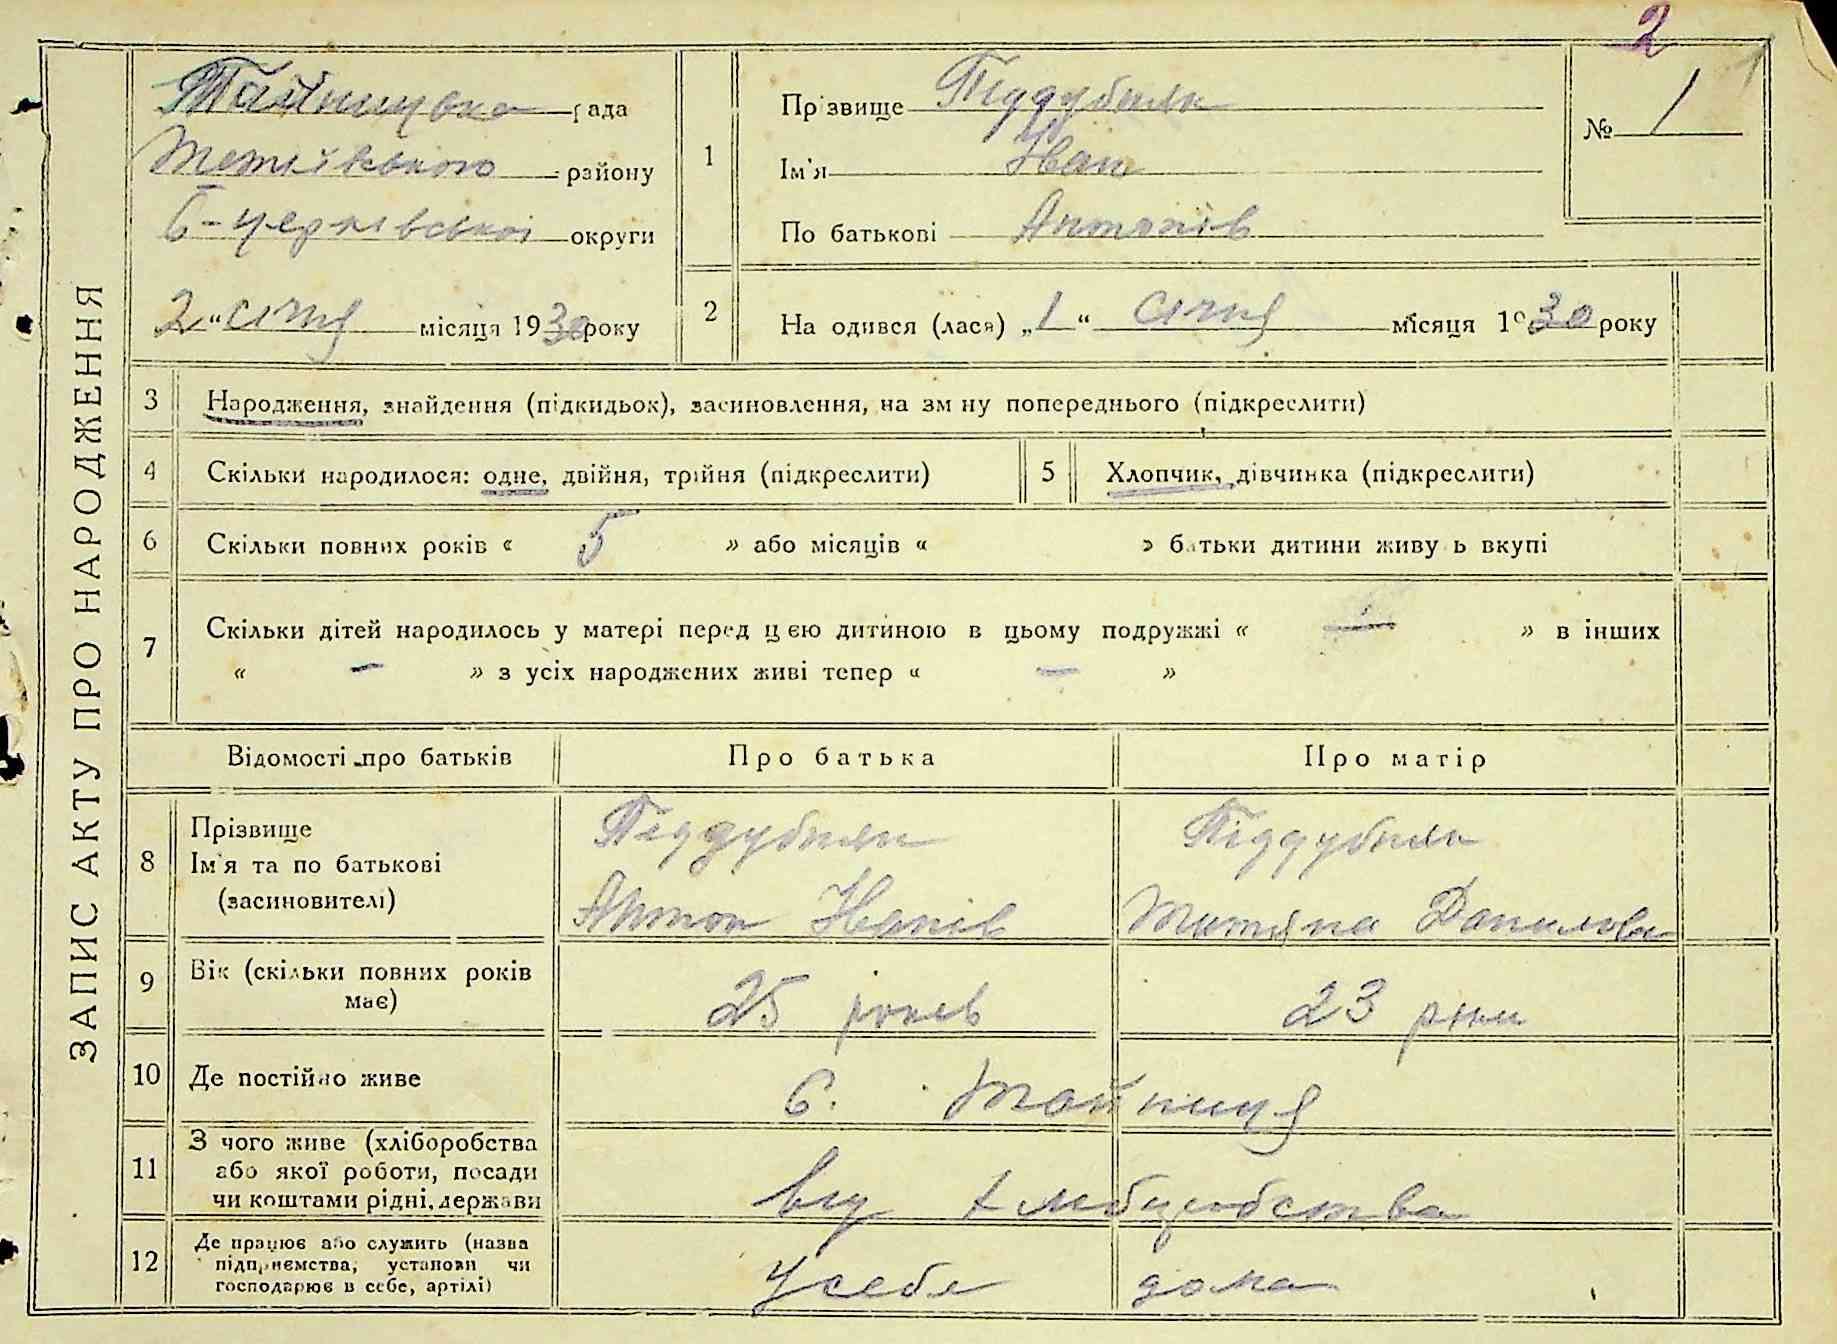 2
ЗАПИС АКТУ ПРО НАРОДЖЕННЯ
Тайницька рада
Тетіївського району
Б-Церківської округи
2 „ січня місяця 1930 року
1 Прізвище Піддубняк
Ім'я Иван
По батькові Антонів
№ 1
2 На одився (лася) „1“ січня місяця 1930 року
3 Народження, знайдення (підкидьок), засиновлення, на зм ну попереднього (підкреслити)
4 Скільки народилося: одне, двійня, трійня (підкреслити) 5 Хлопчик, дівчинка (підкреслити)
6 Скільки повних років « 5 » або місяців « » батьки дитини живу ь вкупі
7 Скільки дітей народилось у матері перед цією дитиною в цьому подружжі « — » в інших
« — » з усіх народжених живі тепер « — »
Відомості про батьків Про батька Про матір
8 Прізвище Піддубняк Піддубняк
Ім'я та по батькові
(засиновителі) Антон Иванів Титяна Данилова
9 Вік (скільки повних років має) 25 років 23 роки
10 Де постійно живе с. Тайниця
11 З чого живе (хліборобства
або якої роботи, посади
чи коштами рідні, держави від
12 Де працює або служить (назва
підприємства, установи чи
господарює в себе, артілі) У себе дома